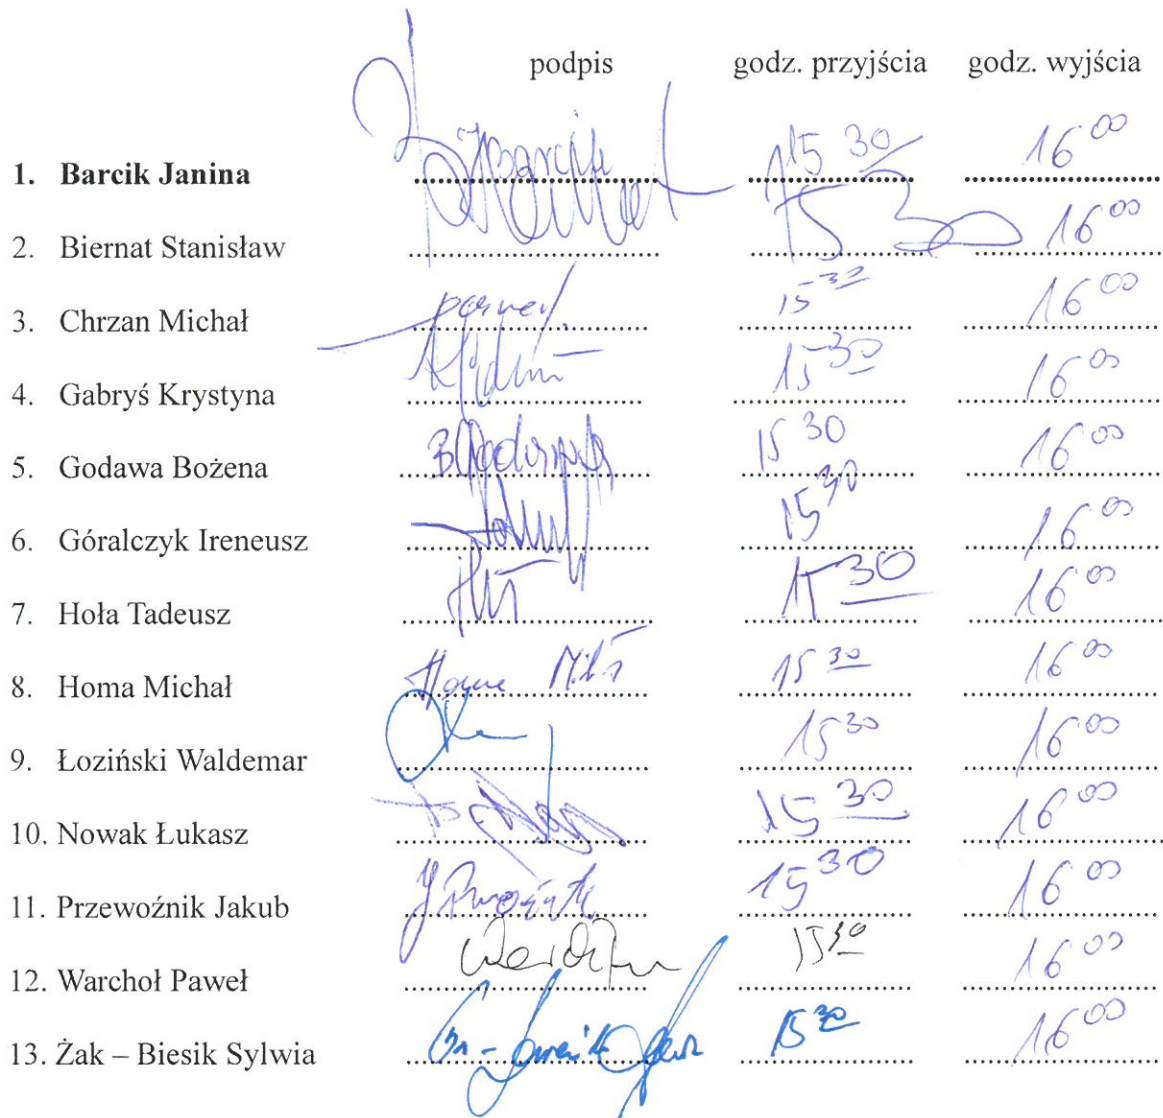 podpis godz. przyjścia godz. wyjścia
1. Barcik Janina Barcik 15 30 16 00
2. Biernat Stanisław 15 30 16 00
3. Chrzan Michał 15 30 16 00
4. Gabryś Krystyna 15 30 16 00
5. Godawa Bożena 15 30 16 00
6. Góralczyk Ireneusz 15 30 16 00
7. Hoła Tadeusz 15 30 16 00
8. Homa Michał 15 30 16 00
9. Łoziński Waldemar 15 30 16 00
10. Nowak Łukasz 15 30 16 00
11. Przewoźnik Jakub 15 30 16 00
12. Warchoł Paweł 15 30 16 00
13. Żak – Biesik Sylwia 15 30 16 00